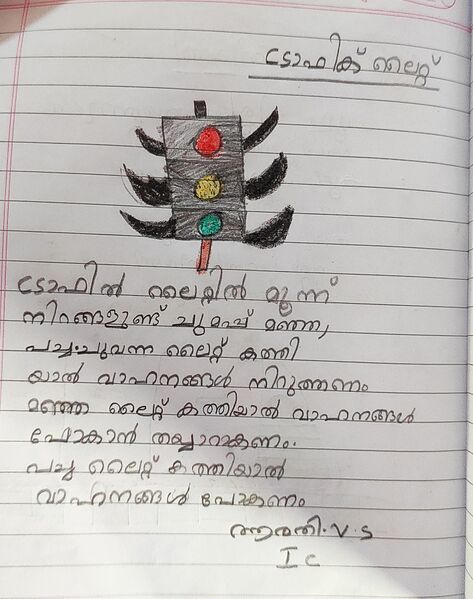 ട്രാഫിക് ലൈറ്റ്
ട്രാഫിൽ ലൈറ്റിൽ മൂന്ന്
നിറങ്ങളുണ്ട് ചുമപ്പ് മഞ്ഞ,
പച്ച.ചുവന്ന ലൈറ്റ് കത്തി
യാൽ വാഹനങ്ങൾ നിറുത്തണം
മഞ്ഞ ലൈറ്റ് കത്തിയാൽ വാഹനങ്ങൾ
പോകാൻ തയ്യാറാകണം.
പച്ച ലൈറ്റ് കത്തിയാൽ
വാഹനങ്ങൾ പോകണം
ആരതി.V.S
I C